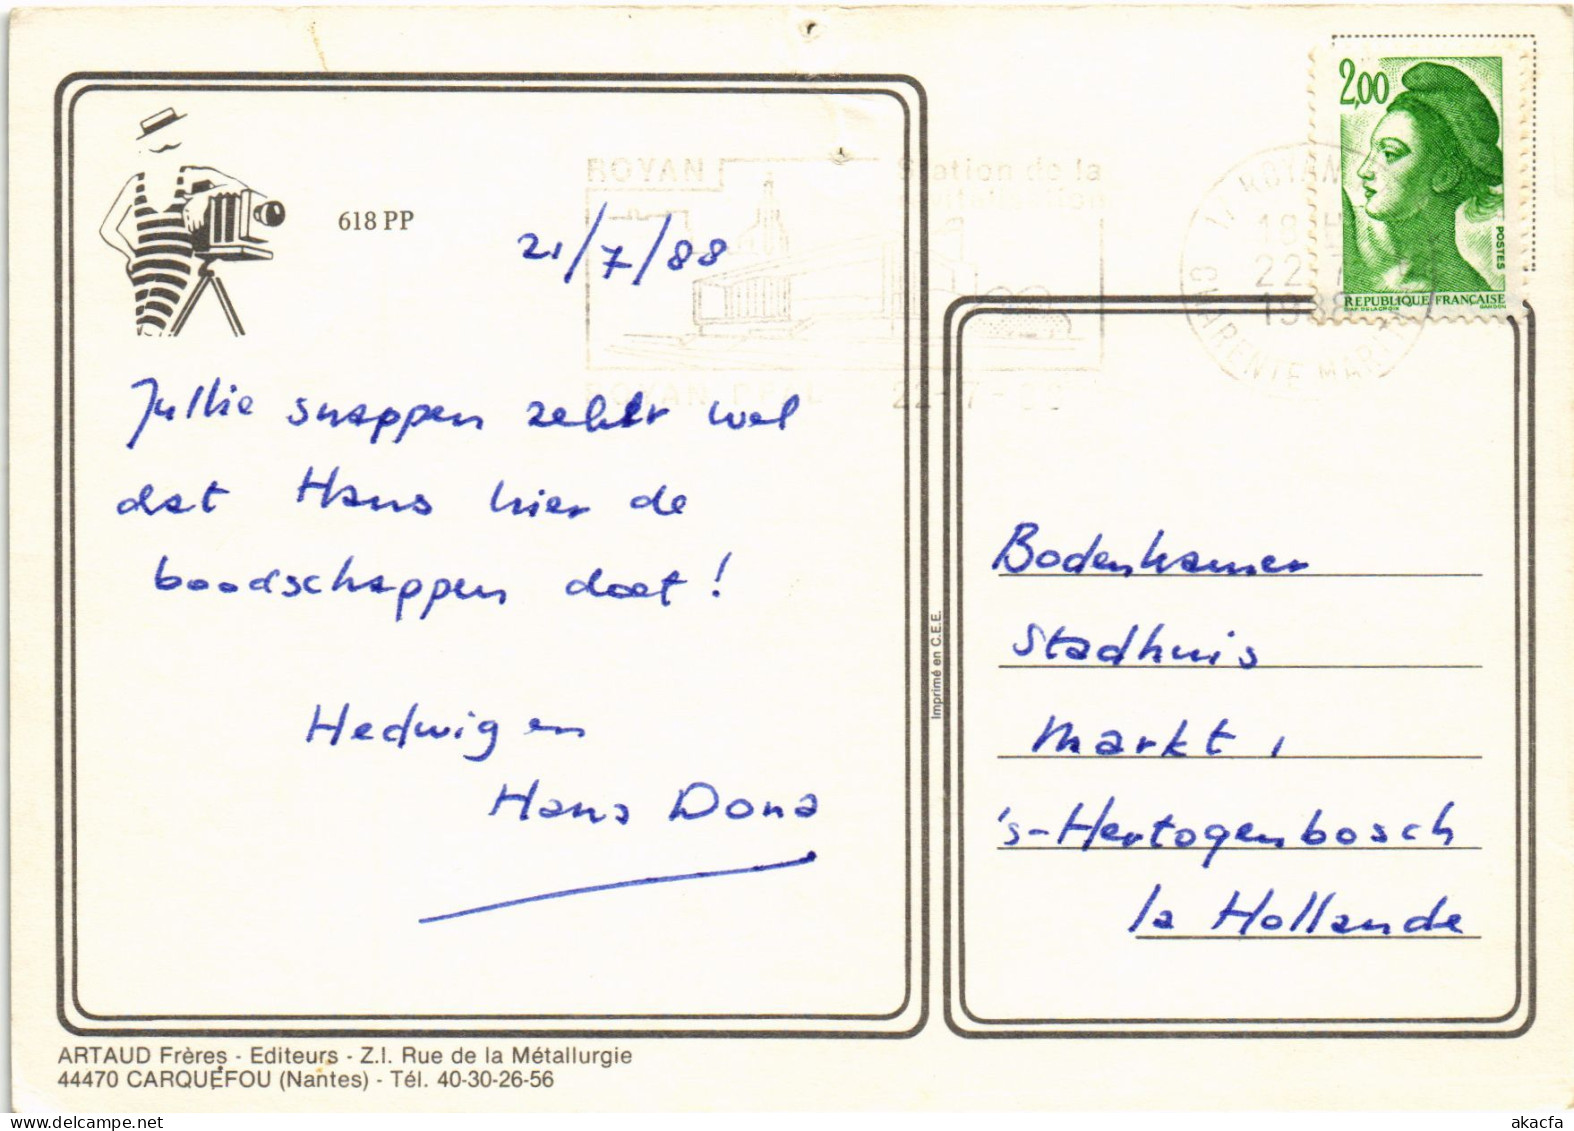 2,00
POSTES
REPUBLIQUE FRANÇAISE
ROYAN
Station de la
ROYAN PPAL 22-7-88
18 H
22-7
1988
CHARENTE MARITIME
618 PP
21/7/88
Jullie snappen zeker wel
dat Hans hier de
boodschappen doet!
Hedwig en
Hans Dona
Imprimé en C.E.E.
Bodenhamer
Stadhuis
Markt 1
's-Hertogenbosch
la Hollande
ARTAUD Frères - Editeurs - Z.I. Rue de la Métallurgie
44470 CARQUEFOU (Nantes) - Tél. 40-30-26-56
akacfa
www.delcampe.net